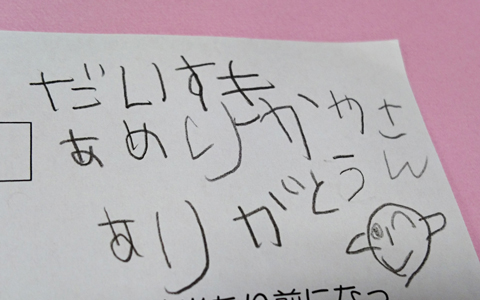 だいすき
あめりかやさん
ありがとう
前になっ